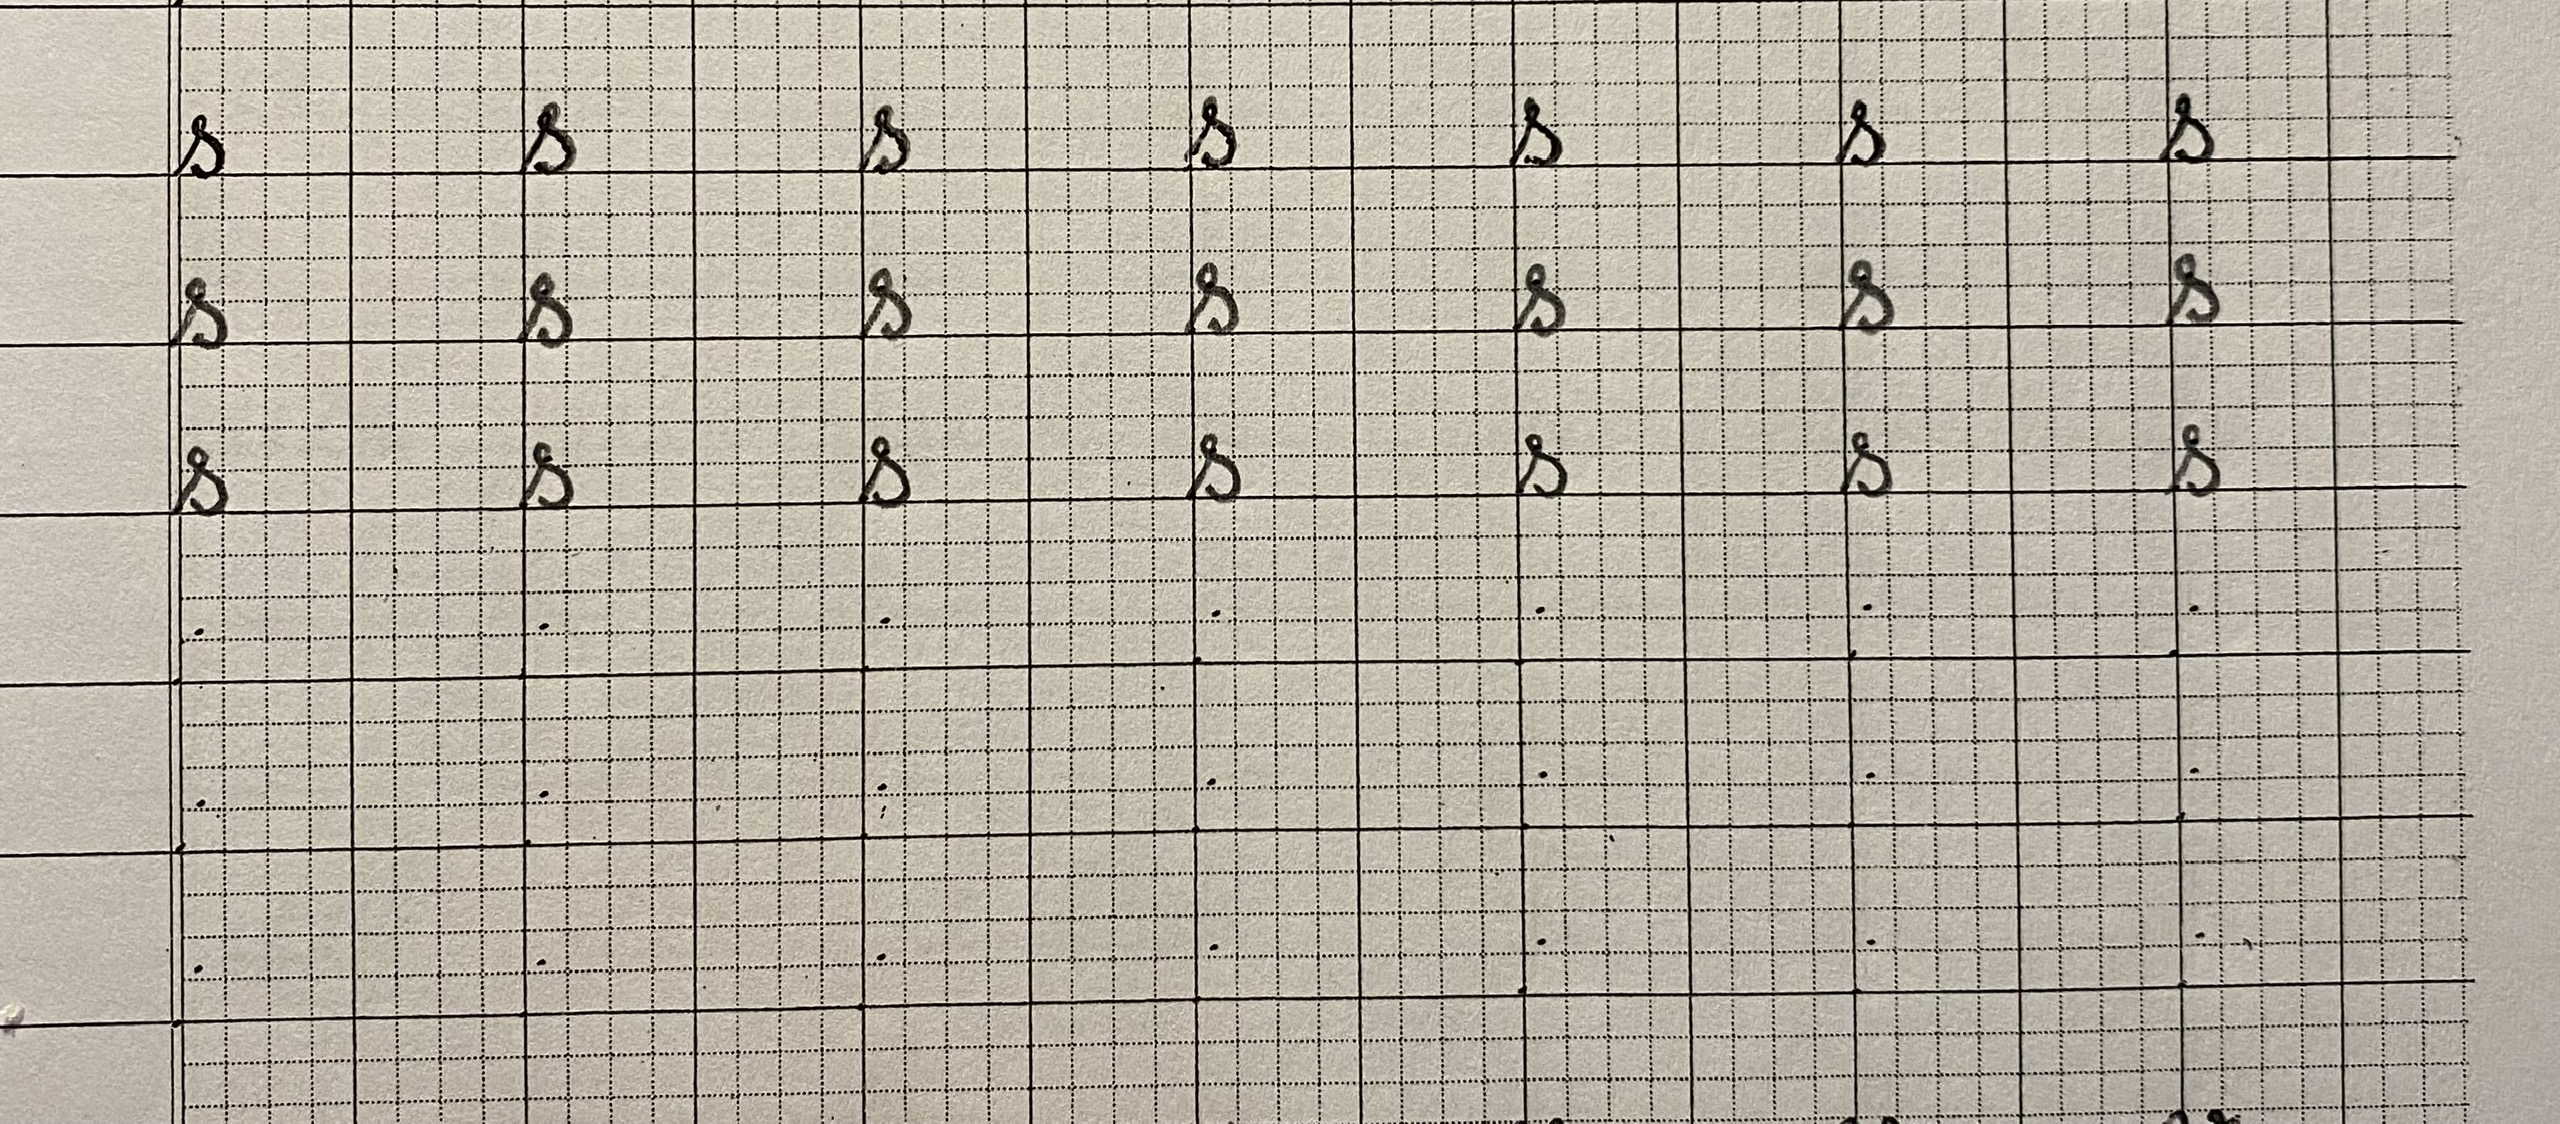 s s s s s s s
s s s s s s s
s s s s s s s